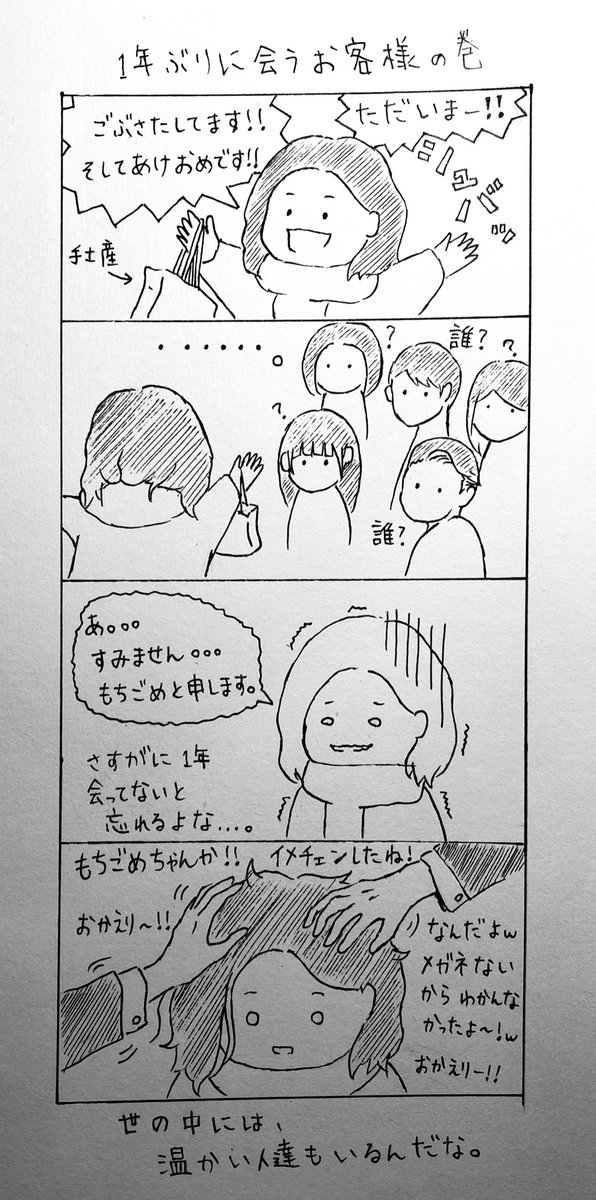 1年ぶりに会うお客様の巻
ただいまー!!
ごぶさたしてます!!
そしてあけおめです!!
手土産
・・・・・・
?
誰?
?
?
誰?
あ。。。
すみません。。。
もちごめと申します。
さすがに1年
会ってないと
忘れるよな...。
もちごめちゃんか!!
イメチェンしたね!
おかえり〜!!
なんだよw
メガネない
からわかんな
かったよ〜!w
おかえりー!!
世の中には、
温かい人達もいるんだな。